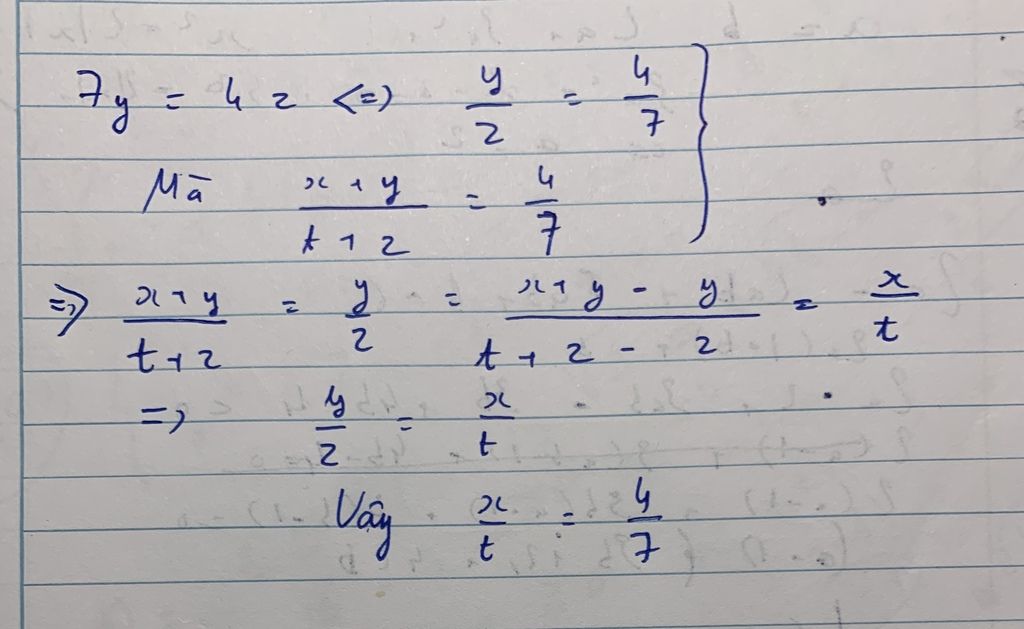 7y = 4z <=> y/z = 4/7
Mà (x + y)/(t + z) = 4/7
=> (x + y)/(t + z) = y/z = (x + y - y)/(t + z - z) = x/t
=> y/z = x/t
Vậy x/t = 4/7